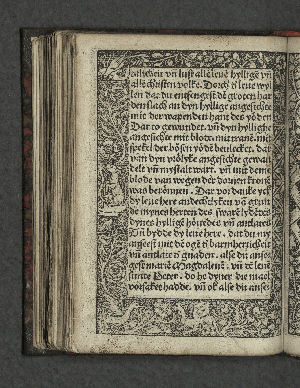 salicheit vn̄ lust alle leuē hyllige vn̄
alle christen volke. Dorch dī leue wyl
len dar du entfengest dē groten har
den slach an dyn hyllige angesichte
mit der wapenden hant des yöden
Dar to gewundet. vn̄ dyn hyllighe
angesichte mit blode. mit tranē. mit
spekel der bösen yödē beulecket. dar
van dyn vrölyke angesichte gewan
delt vn̄ mystalt wart. vn̄ mit deme
blode van wegen der dornen kronē
was berönnen. Dar vor danke yck
dy leue here andechtlyken vā grun
de mynes herten des sware lydēdes
dynes hyllighē höuedes vn̄ antlates
Vn̄ bydde dy leue here. dat du my
anseest mit dē ogē dī barmherticheit
vn̄ antlate dī gnaden. alse du anse
gest mariē Magdalenē. vn̄ dē leuē
sunte Peter. do he dyner drie mael
vorsaket hadde. vn̄ ok alse du anse